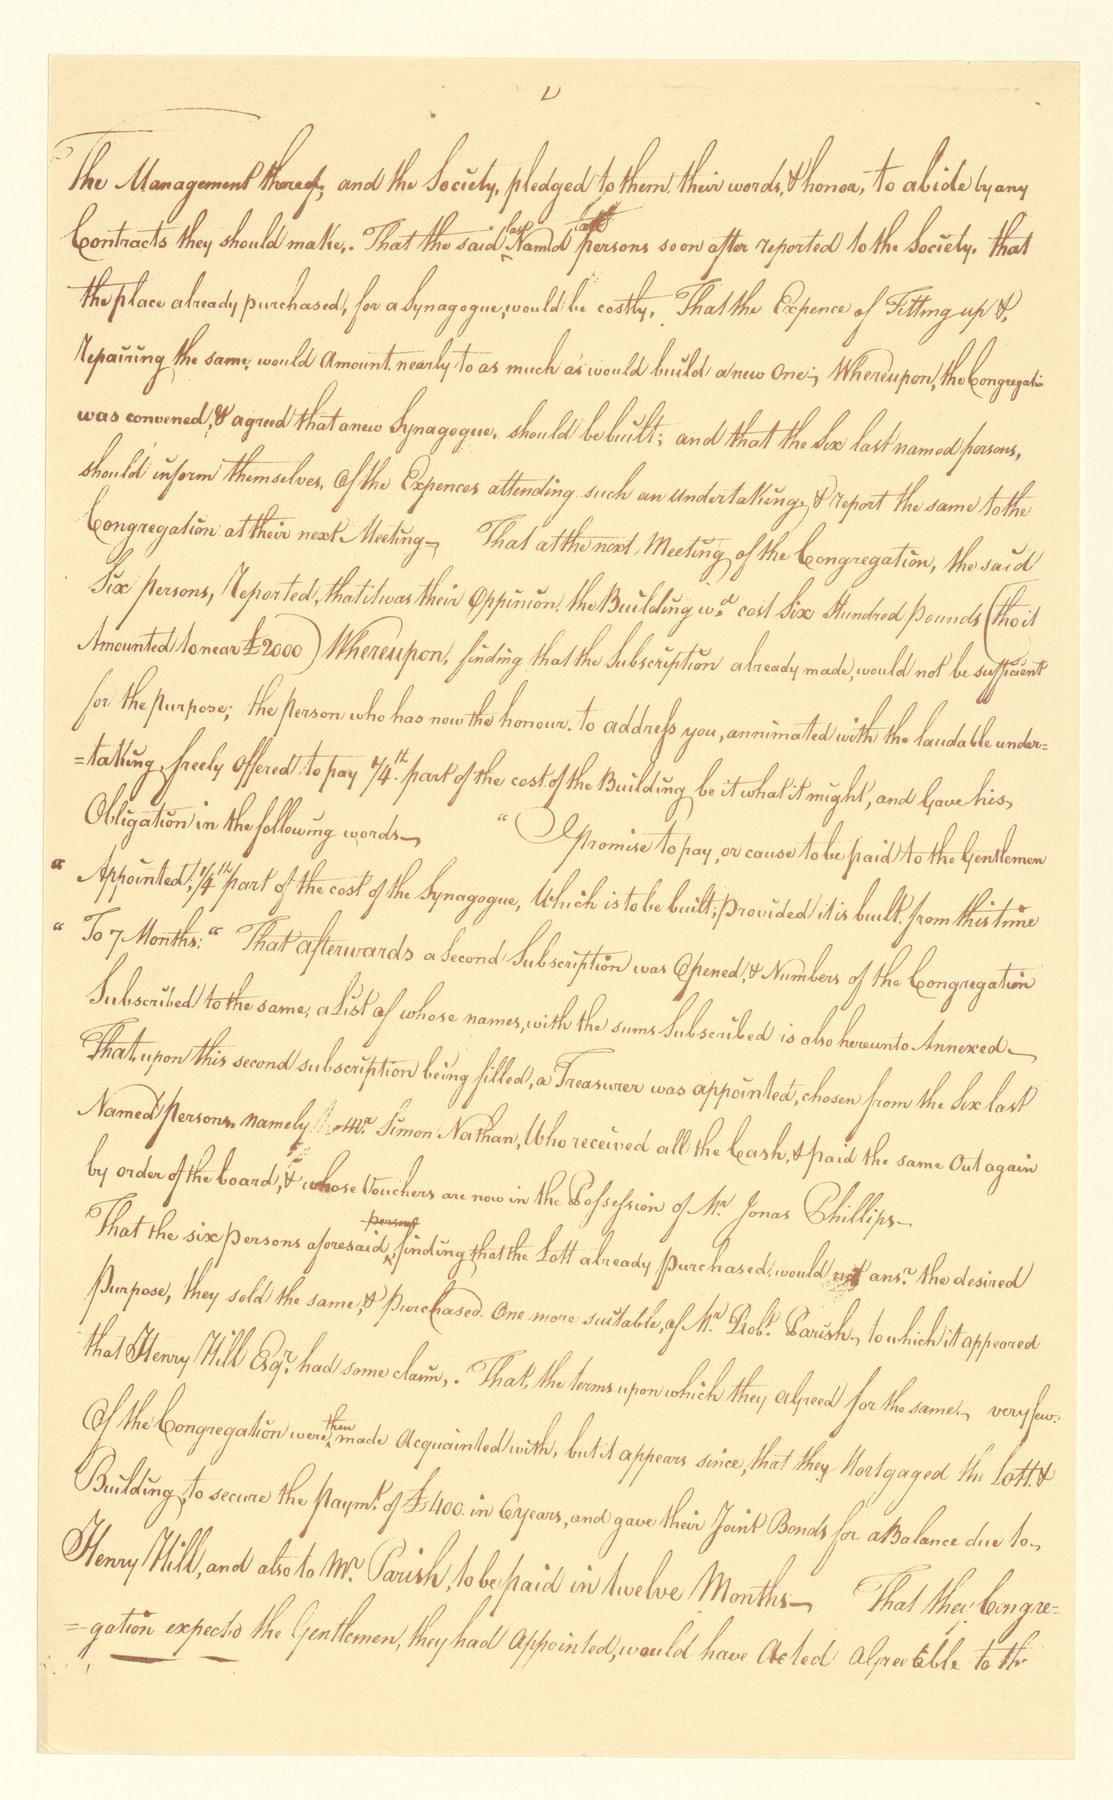 The Management thereof, and the Society, pledged to them their words, & honor, to abide by any
Contracts they should make,. That the said last Named persons soon after reported to the Society, that
the place already purchased, for a Synagogue, would be costly, That the Expence of Fitting up &,
repairing the same, would Amount nearly to as much as would build a new One;, Whereupon, the Congregatio
was convened, & agreed that a new Synagogue, should be built; and that the Six last named persons,
should inform themselves, Of the Expences attending such an undertaking, & report the same to the
Congregation at their next Meeting— That at the next Meeting of the Congregation, the said
Six persons, Reported, that it was their Oppinion, the Building wd. cost Six Hundred pounds (tho it
Amounted to near £2000) Whereupon, finding that the Subscription already made, would not be sufficient
for the purpose; the person who has now the honour, to address you, annimated with the laudable under=
=taking, freely Offered to pay 1/4th. part of the cost of the Building be it what it might, and Gave his,
Obligation in the following words— “ I promise to pay, or cause to be paid to the Gentlemen
“ Appointed, 1/4th part of the cost of the Synagogue, Which is to be built, provided it is built from this time
“ To 7 Months: “ That afterwards a Second Subscription was Opened, & Numbers of the Congregation
Subscribed to the same, a List of whose names, with the sums Subscribed is also hereunto Annexed.—
That upon this second subscription being filled, a Treasurer was appointed, chosen from the Six last
Named persons, namely Mr. Simon Nathan, Who received all the Cash, & paid the same Out again
by order of the board, & whose Vouchers are now in the Possession of Mr. Jonas Phillips—
persons
That the six persons aforesaid, finding that the Lott already purchased, would not ansr. the desired
purpose, they sold the same, & purchased One more suitable, of Mr. Robt. Parish, to which it appeared
that Henry Hill Esqr. had some claim,. That, the terms upon which they Agreed for the same, very few,
Of the Congregation were then made Acquainted with, but it appears since, that they Mortgaged the Lott &
Building, to secure the paymt. of £400. in 6 years, and gave their Joint Bonds for a Balance due to,
Henry Hill, and also to Mr. Parish, to be paid in twelve Months— That they Congre=
=gation expected the Gentlemen, they had Appointed, would have Acted Agreeable to the